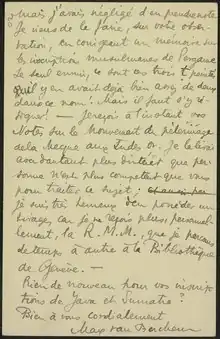 mais j'avais négligé d'en prendre note.
Je viens de la faire, sur votre obser-
vation, en corrigeant un mémoire sur
les inscriptions musulmanes de l'
Le seul ennui, ce sont ces trois t pointés
qu'il y en avait déjà bien assez de deux
dans ce nom! Mais il faut s'y ré-
signer! — Je reçois à l'instant vos
Notes sur le Mouvement du pèlerinage
de la Mecque aux Indes or. Je le lirai
avec d'autant plus d'intérêt que per-
sonne n'est plus compétent que vous
pour traiter ce sujet;
je suis très heureux d'en posséder un
tirage, car je ne reçois plus, personnel-
lement, la R. M. M., que je parcours
de temps à autre à la Bibliothèque
de Genève. —
Rien de nouveau pour vos inscrip-
tions de Java et Sumatra?
Bien à vous cordialement
Max van Berchem